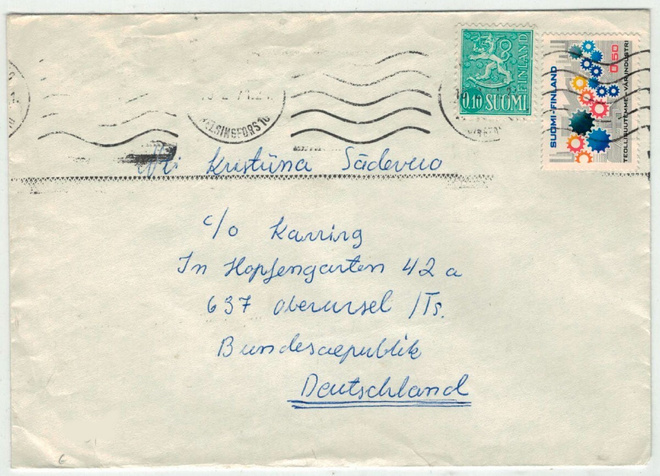 FINLAND
0.10 SUOMI
SUOMI-FINLAND
0,50
TEOLLISUUTEMME-VÅR INDUSTRI
HELSINGFORS 10
Kristiina
c/o Karring
In Hopfengarten 42 a
637 Oberursel /Ts.
Bundesrepublik
Deutschland